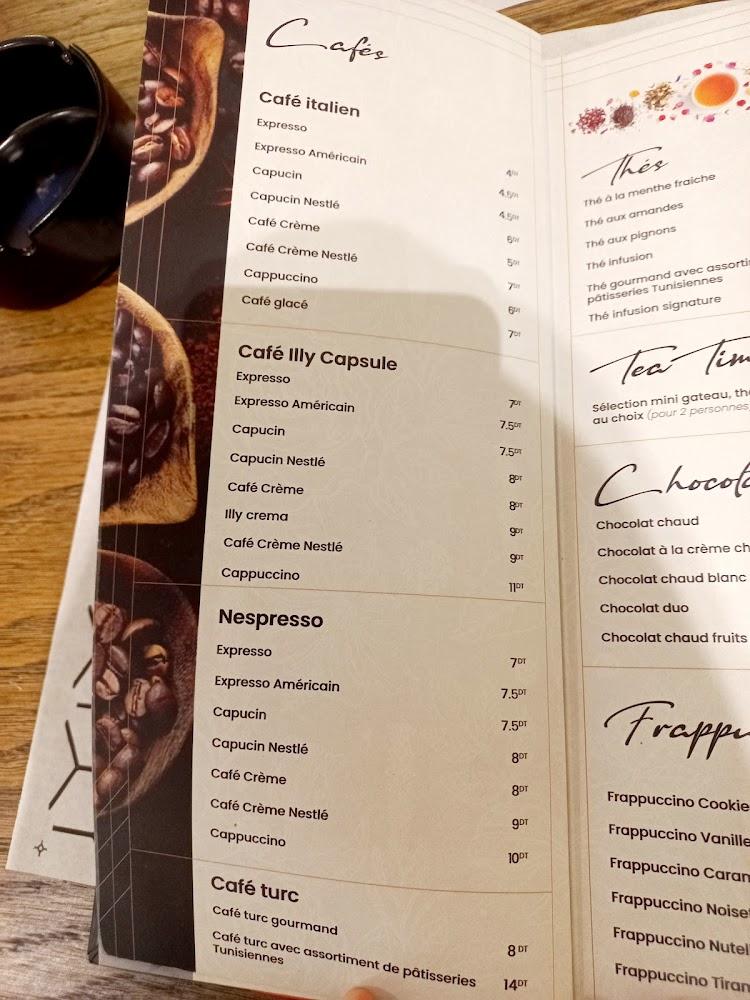 Cafés
Café italien
Expresso 4DT
Expresso Américain 4,5DT
Capucin 4,5DT
Capucin Nestlé 6DT
Café Crème 5DT
Café Crème Nestlé 7DT
Cappuccino 6DT
Café glacé 7DT
Café Illy Capsule
Expresso 7DT
Expresso Américain 7.5DT
Capucin 7.5DT
Capucin Nestlé 8DT
Café Crème 8DT
Illy crema 9DT
Café Crème Nestlé 9DT
Cappuccino 11DT
Nespresso
Expresso 7DT
Expresso Américain 7.5DT
Capucin 7.5DT
Capucin Nestlé 8DT
Café Crème 8DT
Café Crème Nestlé 9DT
Cappuccino 10DT
Café turc
Café turc gourmand 8 DT
Café turc avec assortiment de pâtisseries
Tunisiennes 14DT
Thés
Thé à la menthe fraiche
Thé aux amandes
Thé aux pignons
Thé infusion
Thé gourmand avec assorti
pâtisseries Tunisiennes
Thé infusion signature
Tea Tim
Sélection mini gateau, thé
au choix (pour 2 personnes)
Chocola
Chocolat chaud
Chocolat à la crème ch
Chocolat chaud blanc
Chocolat duo
Chocolat chaud fruits
Frappu
Frappuccino Cookie
Frappuccino Vanille
Frappuccino Caram
Frappuccino Noiset
Frappuccino Nutell
Frappuccino Tiram